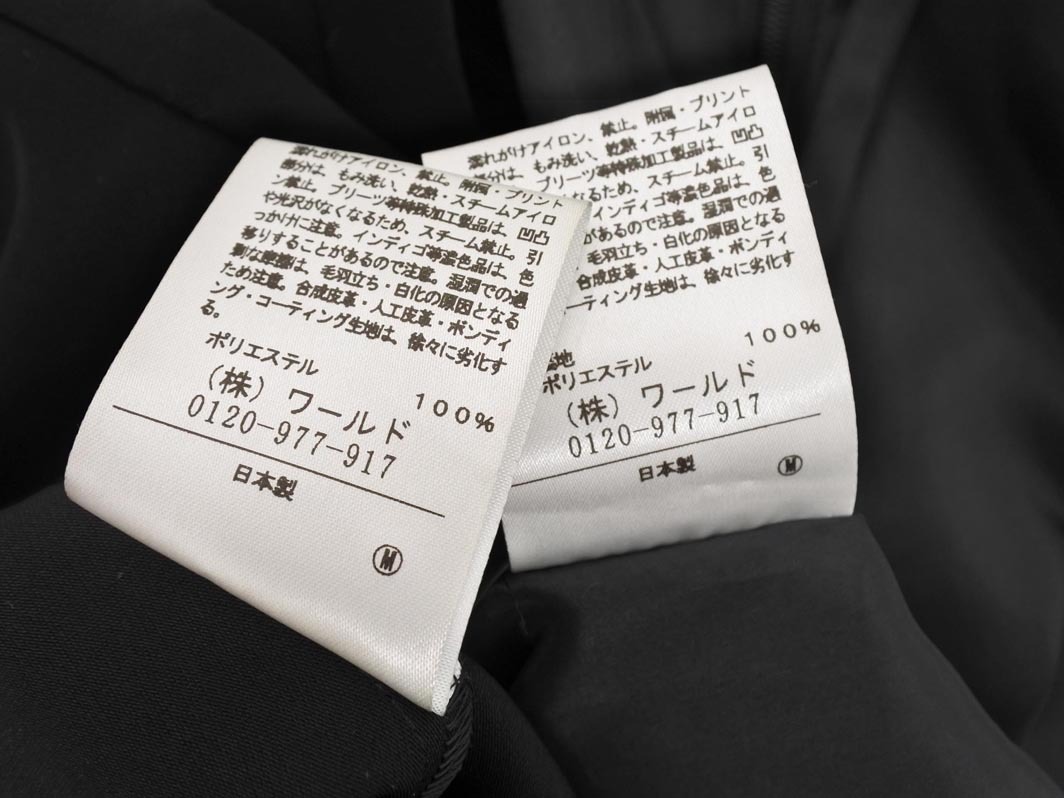 濡れがけアイロン、禁止。附属・プリント
部分は、もみ洗い、乾熱・スチームアイロ
ン禁止。プリーツ等特殊加工製品は、凹凸
や光沢がなくなるため、スチーム禁止。引
っかけに注意。インディゴ等濃色品は、色
移りすることがあるので注意。湿潤での過
剰な摩擦は、毛羽立ち・白化の原因となる
ため注意。合成皮革・人工皮革・ボンディ
ング・コーティング生地は、徐々に劣化す
る。
ポリエステル
100%
(株) ワールド
0120-977-917
日本製
M
濡れがけアイロン、禁止。附属・プリント
部分は、もみ洗い、乾熱・スチームアイロ
プリーツ等特殊加工製品は、凹凸
なるため、スチーム禁止。引
インディゴ等濃色品は、色
があるので注意。湿潤での過
毛羽立ち・白化の原因となる
合成皮革・人工皮革・ボンディ
ーティング生地は、徐々に劣化す
地
ポリエステル
100%
(株) ワールド
0120-977-917
日本製
M